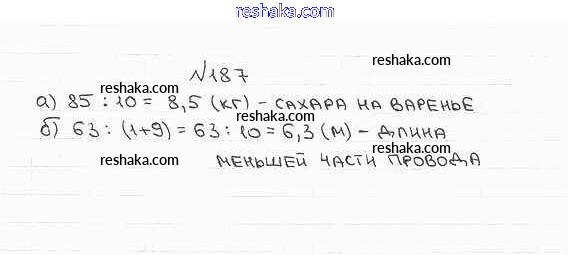 reshaka.com
№187
reshaka.com reshaka.com
а) 85 : 10 = 8,5 (кг) – сахара на варенье
б) 63 : (1+9) = 63 : 10 = 6,3 (м) – длина
reshaka.com reshaka.com
меньшей части провода
reshaka.com reshaka.com